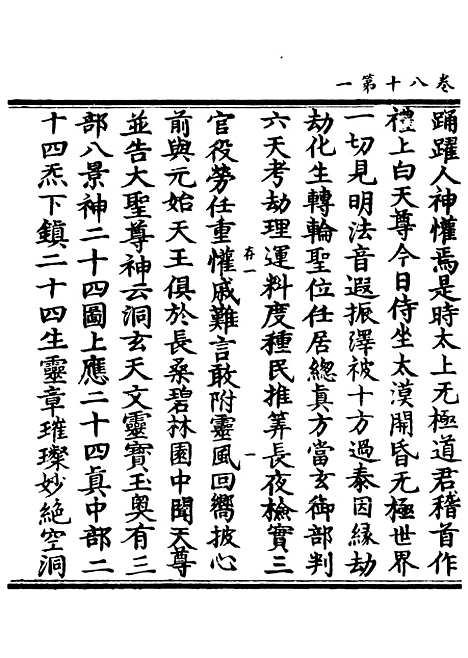 卷八十第一
踊躍人神懽焉是時太上无極道君稽首作
禮上白天尊今日侍坐太漠開昏无極世界
一切見明法音遐振澤被十方過泰因緣劫
劫化生轉輪聖位任居總真方當玄御部判
六天考劫理運料度種民推筭長夜檢實三
存一
一
官役勞任重懽戚難言敢附靈風回嚮披心
前與元始天王俱於長桑碧林園中聞天尊
並告大聖尊神云洞玄天文靈寶玉奧有三
部八景神二十四圖上應二十四眞中部二
十四炁下鎮二十四生靈章璀璨妙絶空洞